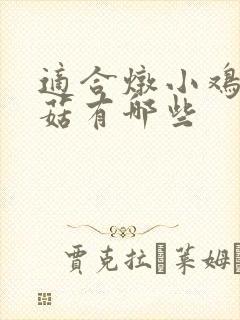 適合燉小鸡
菇有哪些
賈克拉 萊姆